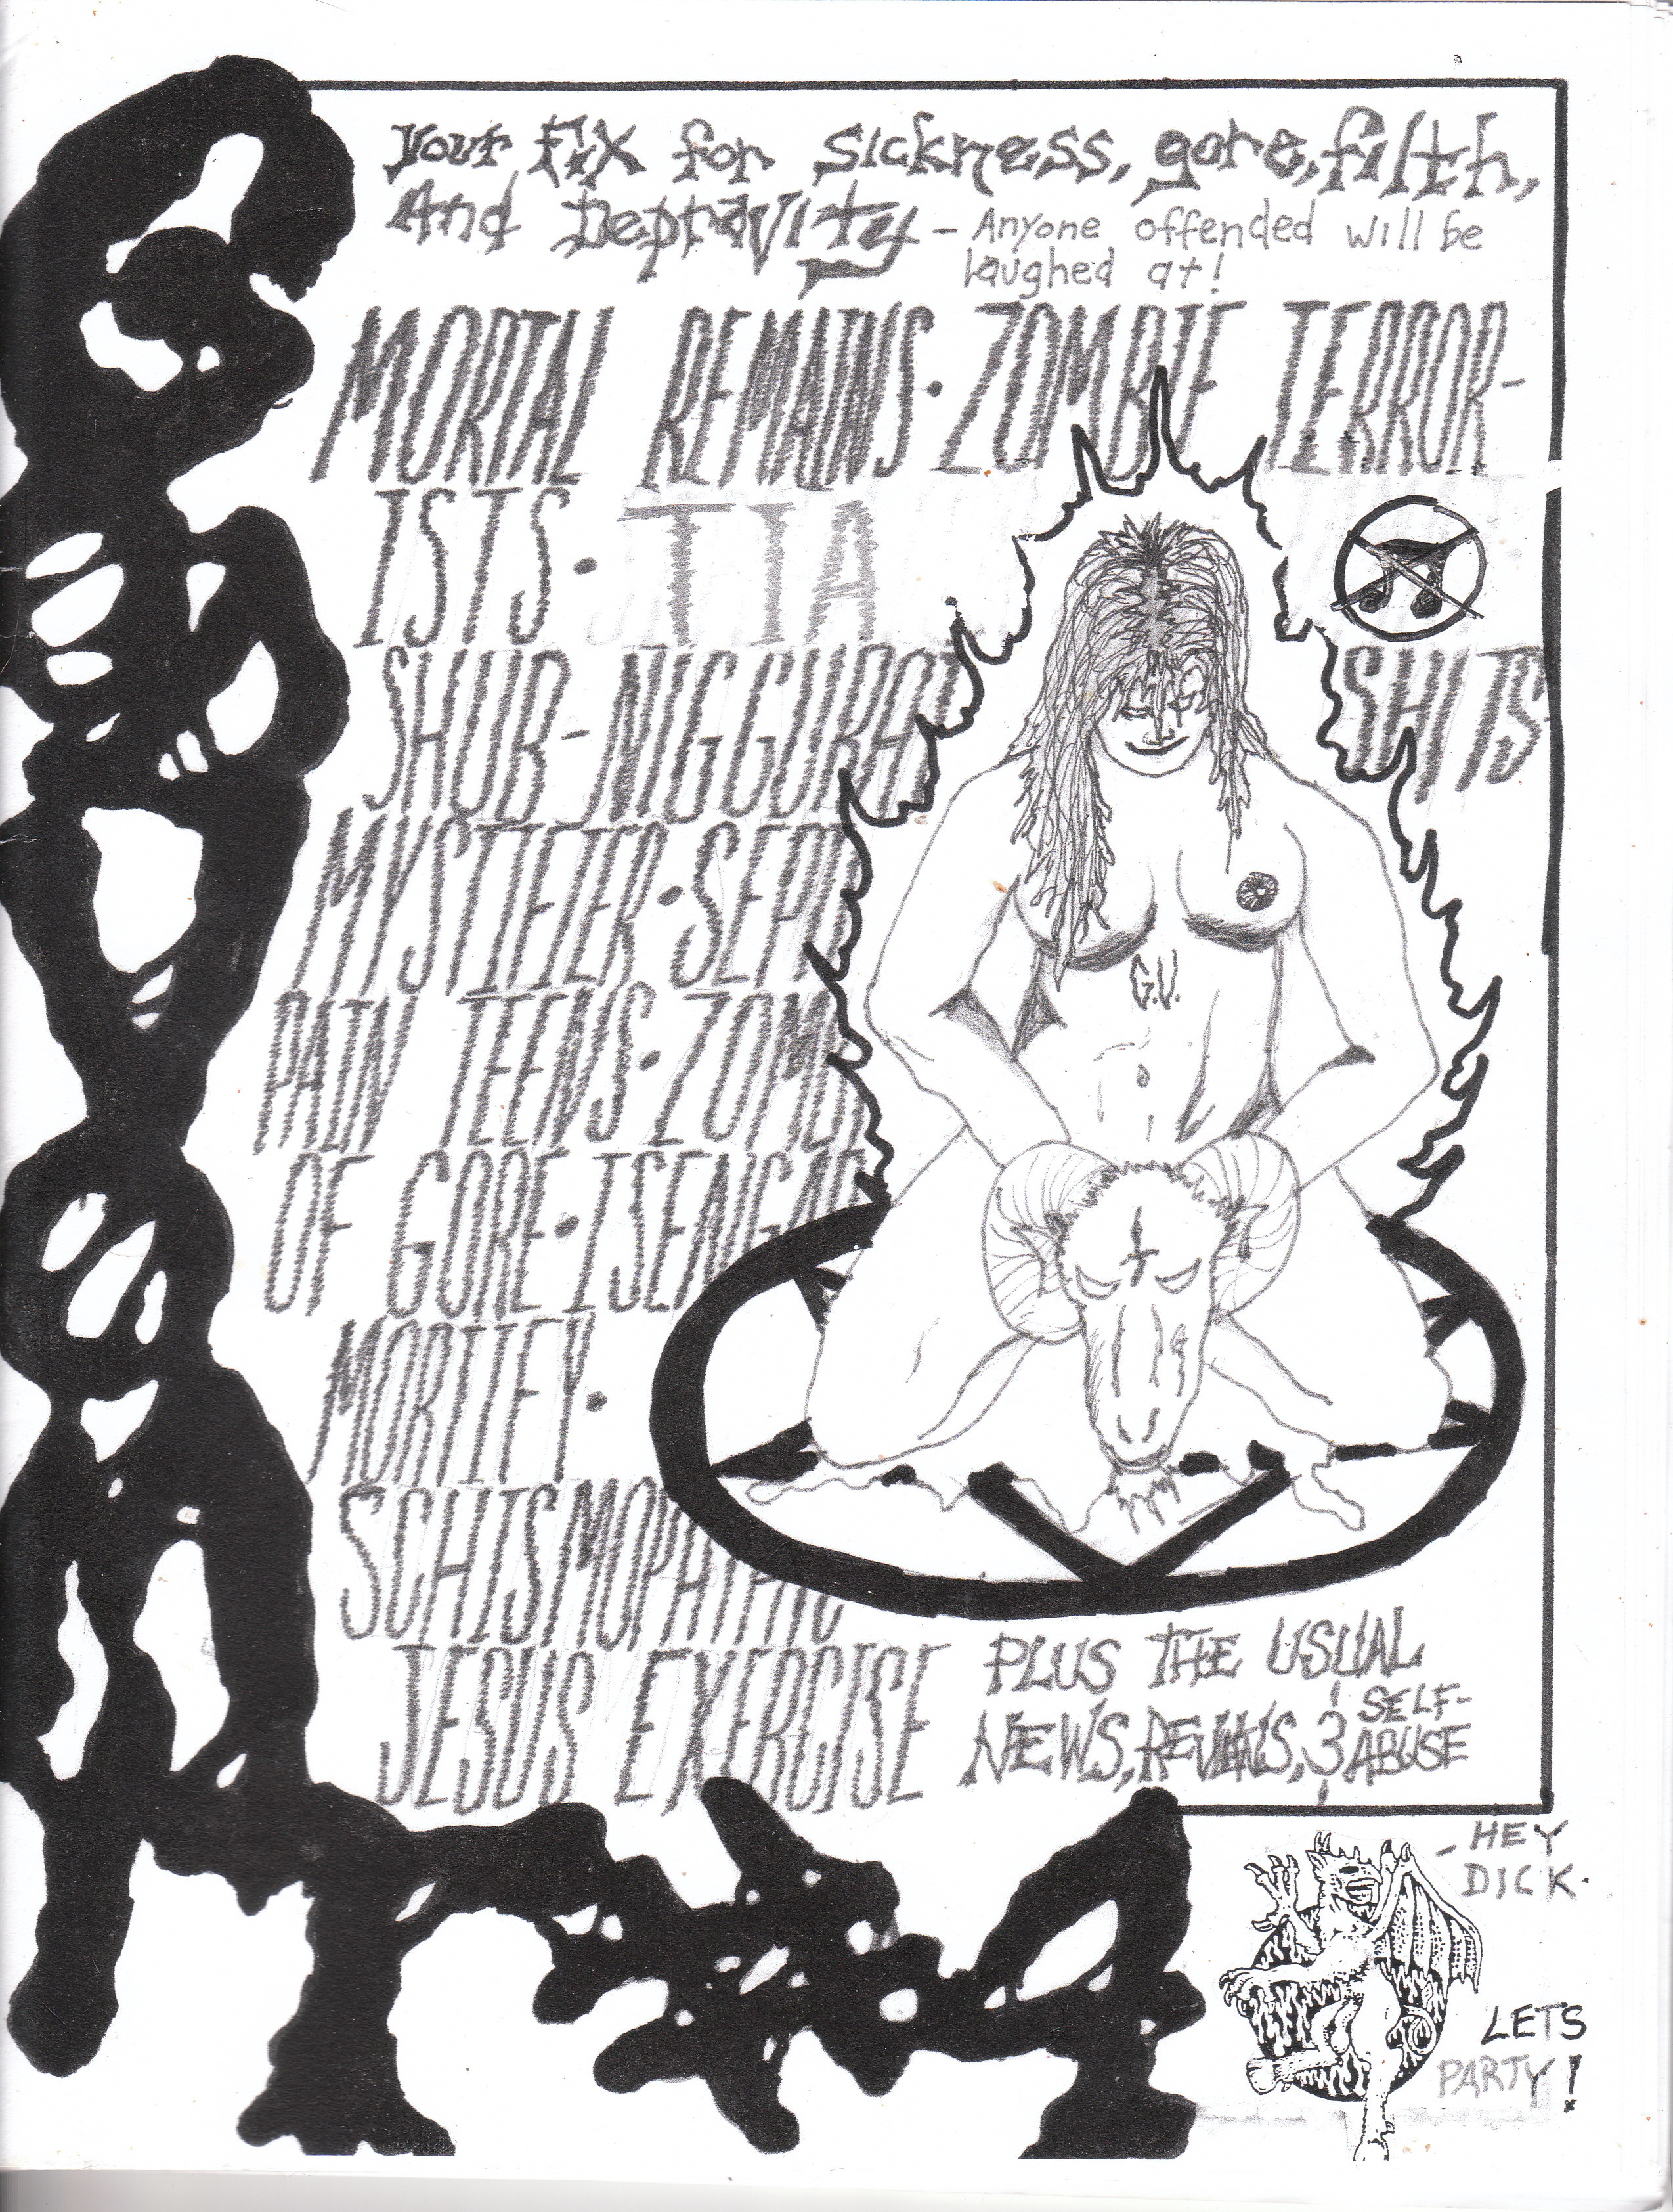 your Fix for sickness, gore, filth,
And Depravity - Anyone offended will be
laughed at!
MORTAL REMAINS · ZOMBIE TERROR-
ISTS · TIA
SHUB-NIGGURAT SHITS
MYSTIFIER · SEPT
PAIN TEENS · ZOMB
OF GORE · ISENGAR
MORTIFY ·
SCHISMOPATHIC
JESUS EXERCISE
G.V.
PLUS THE USUAL
NEWS, REVIEWS, & SELF-
ABUSE
- HEY
DICK.
LETS
PARTY!